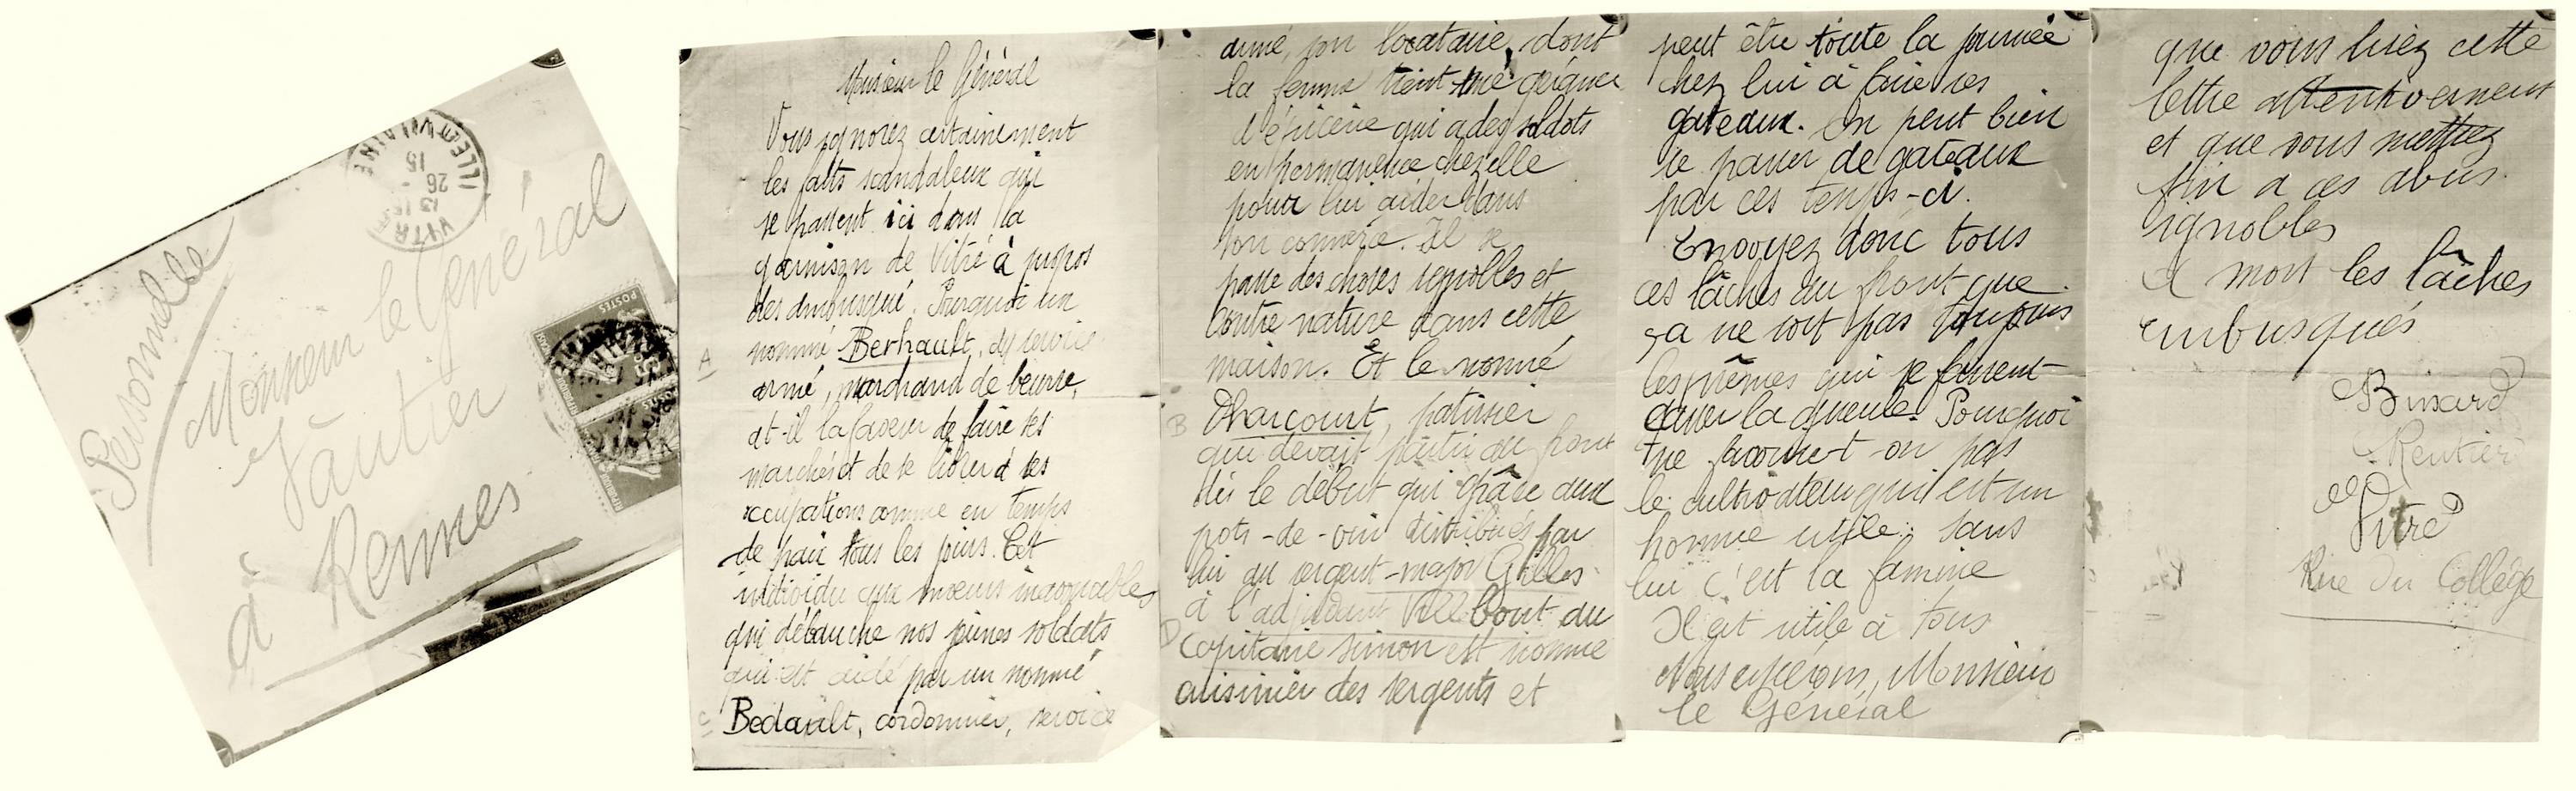 Personnelle
Monsieur le Général
Vautier
à Rennes
VITRE
26 - 15
ILLE-ET-VILAINE
POSTES
Monsieur le Général
Vous ignorez certainement
les faits scandaleux qui
se passent ici dans la
garnison de Vitré à propos
des embusqué. Pourquoi un
A nommé Berhault, du service
armé, marchand de beurre,
at-il la faveur de faire ses
marchés et de se livrer à ses
occupations comme en temps
de paix tous les jours. Cet
individu aux moeurs inavouables
qui débauche nos jeunes soldats
qui est aidé par un nommé
C Bedault, cordonnier, service
armé, son locataire, dont
la femme tient une
d'épicerie qui a des soldats
en permanence chez elle
pour lui aider dans
son commerce. Il se
passe des choses ignobles et
contre nature dans cette
maison. Et le nommé
B Dharcourt, patissier
qui devait partir au front
dès le début qui grâce aux
pots-de-vin distribués par
lui au sergent-major Gilles
à l'adjudant Villbout au
D capitaine Simon est nommé
cuisinier des sergents et
peut être toute la journée
chez lui à faire ses
gateaux. On peut bien
se passer de gateaux
par ces temps-ci.
Envoyez donc tous
ces lâches au front que
ça ne soit pas toujours
les mêmes qui se fassent
casser la gueule. Pourquoi
ne favorise-t-on pas
le cultivateur qui est un
homme utile. Sans
lui c'est la famine
Il est utile à tous
Nous espérons, Monsieur
le Général
que vous lisez cette
lettre attentivement
et que vous mettrez
fin a ces abus
ignobles
A mort les lâches
embusqués
Binard
Rentier
à Vitré
Rue du Collège